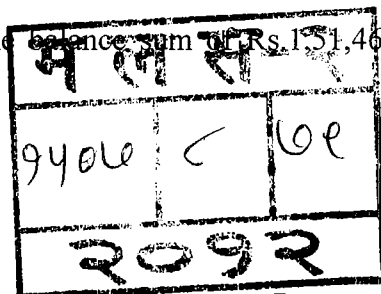 balance sum of Rs.1,51,46
म ल स
१५०७ ८ ७९
२०१२